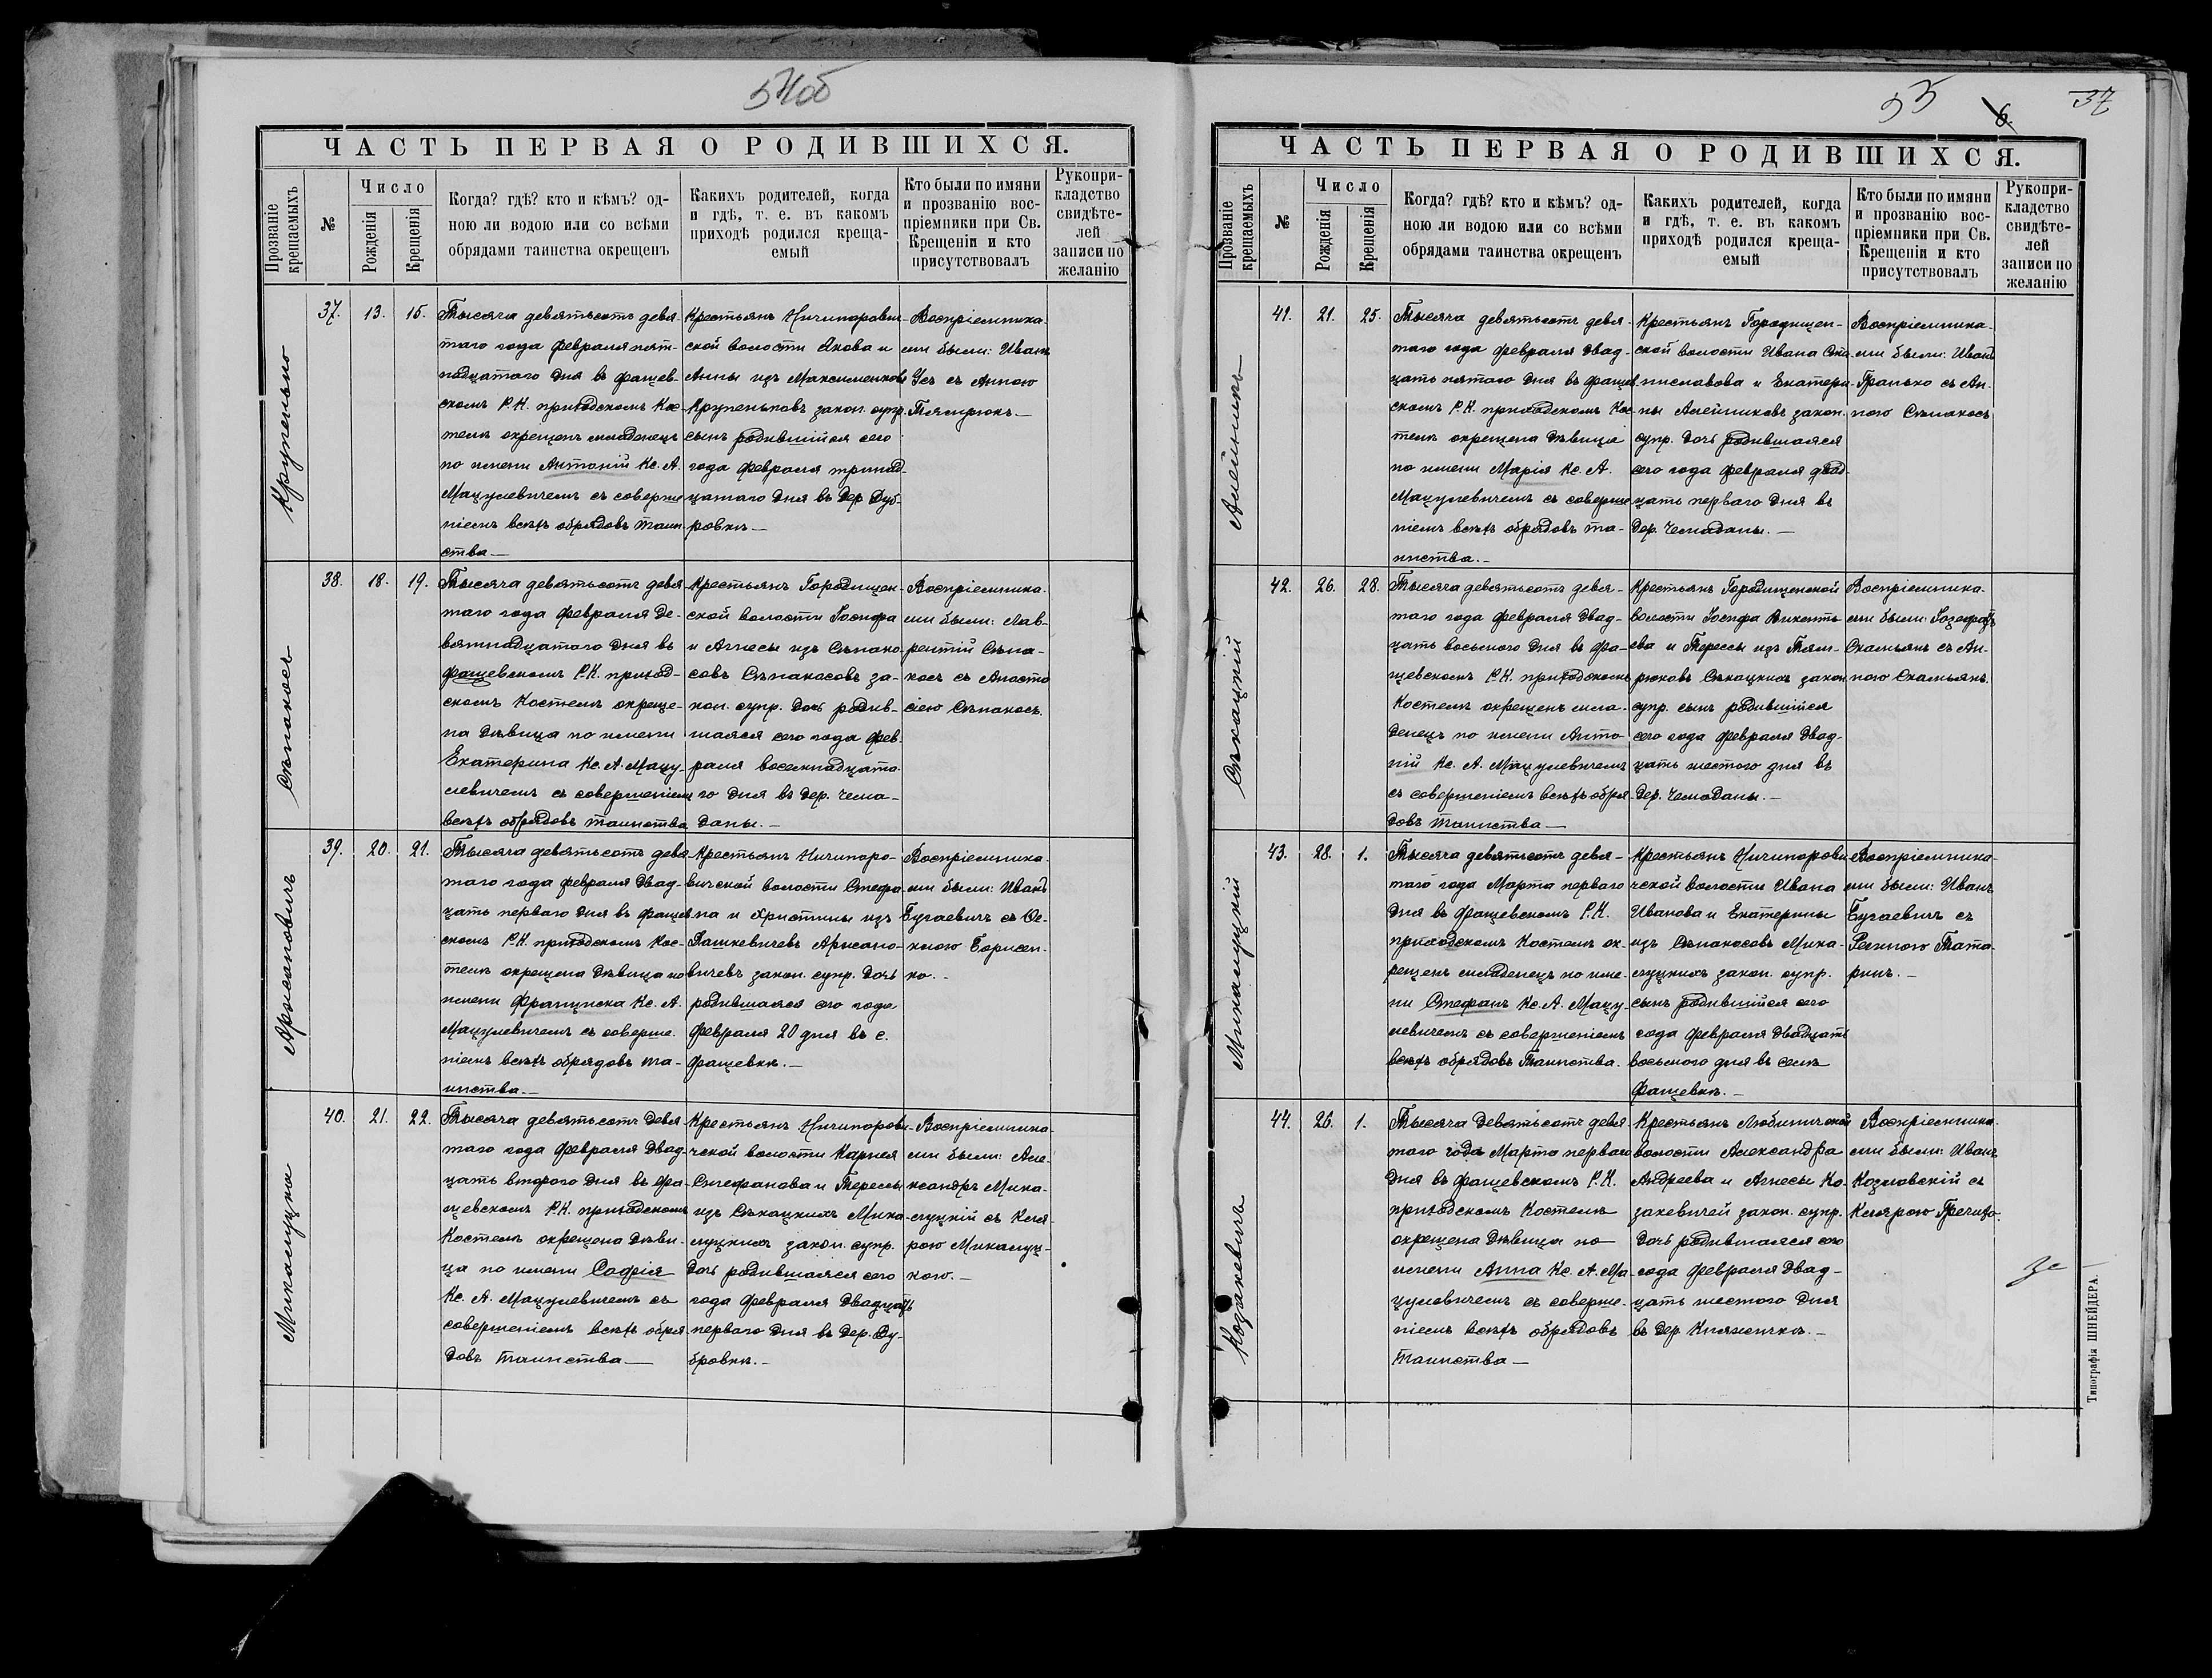 54об
ЧАСТЬ ПЕРВАЯ О РОДИВШИХСЯ.
Прозваніе крещаемыхъ
№
Число
Рожденія
Крещенія
Когда? гдѣ? кто и кѣмъ? од-
ною ли водою или со всѣми
обрядами таинства окрещенъ
Какихъ родителей, когда
и гдѣ, т. е. въ какомъ
приходѣ родился креща-
емый
Кто были по имяни
и прозванію вос-
пріемники при Св.
Крещеніи и кто
присутствовалъ
Рукопри-
кладство
свидѣте-
лей
записи по
желанію
Крупенько
37. 13. 15.
Тысяча девятьсотъ девя-
таго года февраля пят-
надцатаго дня въ фащев-
скомъ Р.К. приходскомъ Кос-
телѣ окрещенъ младенецъ
по имени Антоній Кс. А.
Мацулевичемъ съ соверше-
ніемъ всѣхъ обрядовъ таин-
ства.—
Крестьянъ Ничипорович-
ской волости Якова и
Анны изъ Максименковъ
Крупеньковъ закон. супр.
сынъ родившійся сего
года февраля тринад-
цатаго дня въ дер. Дуб-
ровкѣ—
Воспріемника-
ми были: Иванъ
Усъ съ Анною
Тямрюкъ.—
Сѣпакосъ
38. 18. 19.
Тысяча девятьсотъ девя-
таго года февраля де-
вятнадцатаго дня въ
фащевскомъ Р.К. приход-
скомъ Костелѣ окреще-
на дѣвица по имени
Екатерина Кс. А. Мацу-
левичемъ съ совершеніемъ
всѣхъ обрядовъ таинства
Крестьянъ Городищен-
ской волости Іосифа
и Агнесы изъ Сѣпако-
совъ Сѣпакосовъ за-
кон. супр. дочь родив-
шаяся сего года фев-
раля восемнадцата-
го дня въ дер. Чемо-
даны.—
Воспріемника-
ми были: Лав-
рентій Сѣпа-
косъ съ Апосто
сіею Сѣпакосъ.
Аржановичъ
39. 20. 21.
Тысяча девятьсотъ девя-
таго года февраля двад-
цать перваго дня въ фащев-
скомъ Р.К. приходскомъ Кос-
телѣ окрещена дѣвица по
имени Франциска Кс. А.
Мацулевичемъ съ соверше-
ніемъ всѣхъ обрядовъ та-
инства.—
Крестьянъ Ничипоро-
вичской волости Стефа-
на и Христины изъ
Дашкевичевъ Аржано-
вичевъ закон. супр. дочь
родившаяся сего года
февраля 20 дня въ с.
Фащевкѣ.—
Воспріемника-
ми были: Иванъ
Бугаевичъ съ Ѳе-
клою Борисен-
ко.—
Микалуцка
40. 21. 22.
Тысяча девятьсотъ девя-
таго года февраля двад-
цать второго дня въ фа-
щевскомъ Р.К. приходскомъ
Костелѣ окрещена дѣви-
ца по имени Софія
Кс. А. Мацулевичемъ съ
совершеніемъ всѣхъ обря-
довъ таинства—
Крестьянъ Ничипорови-
чской волости Карнея
Стефанова и Терессы
изъ Сѣкацкихъ Мика-
луцкихъ закон. супр.
дочь родившаяся сего
года февраля двадцать
перваго дня въ дер. Ду-
бровкѣ.—
Воспріемника-
ми были: Але-
ксандръ Мика-
луцкій съ Кля-
рою Микалуц-
кою.—
55 6. 37
ЧАСТЬ ПЕРВАЯ О РОДИВШИХСЯ.
Прозваніе крещаемыхъ
№
Число
Рожденія
Крещенія
Когда? гдѣ? кто и кѣмъ? од-
ною ли водою или со всѣми
обрядами таинства окрещенъ
Какихъ родителей, когда
и гдѣ, т. е. въ какомъ
приходѣ родился креща-
емый
Кто были по имяни
и прозванію вос-
пріемники при Св.
Крещеніи и кто
присутствовалъ
Рукопри-
кладство
свидѣте-
лей
записи по
желанію
Алейникъ
41. 21. 25.
Тысяча девятьсотъ девя-
таго года февраля двад-
цать пятаго дня въ фащев-
скомъ Р.К. приходскомъ Кос-
телѣ окрещена дѣвица
по имени Марія Кс. А.
Мацулевичемъ съ соверше-
ніемъ всѣхъ обрядовъ та-
инства.—
Крестьянъ Городищен-
ской волости Ивана Ста-
ниславова и Екатери-
ны Алейниковъ закон.
супр. дочь родившаяся
сего года февраля двад-
цать перваго дня въ
дер. Чемаданы.—
Воспріемника-
ми были: Иванъ
Гранько съ Ан-
ною Сѣпакосъ
Сѣкацкій
42. 26. 28.
Тысяча девятьсотъ девя-
таго года февраля двад-
цать восьмого дня въ фа-
щевскомъ Р.К. приходскомъ
Костелѣ окрещенъ мла-
денецъ по имени Анто-
ній Кс. А. Мацулевичемъ
съ совершеніемъ всѣхъ обря-
довъ таинства—
Крестьянъ Городищенской
волости Іосифа Викенть-
ева и Терессы изъ Тям-
рюковъ Сѣкацкихъ закон
супр. сынъ родившійся
сего года февраля двад-
цать шестого дня въ
дер. Чемоданы.—
Воспріемника-
ми были: Іозефатъ
Скамьянъ съ Ан-
ною Скамьянъ.
Микалуцкій
43. 28. 1.
Тысяча девятьсотъ девя-
таго года Марта перваго
дня въ фащевскомъ Р.К.
приходскомъ Костелѣ ок-
рещенъ младенецъ по име-
ни Стефанъ Кс. А. Мацу-
левичемъ съ совершеніемъ
всѣхъ обрядовъ Таинства.
Крестьянъ Ничипорови-
чской волости Ивана
Иванова и Екатерины
изъ Сѣпакосовъ Мика-
луцкихъ закон. супр.
сынъ родившійся сего
года февраля двадцать
восьмого дня въ селѣ
Фащевкѣ.—
Воспріемника-
ми были: Иванъ
Бугаевичъ съ
Региною Тата-
ринъ.—
Козакевичъ
44. 26. 1.
Тысяча девятьсотъ девя-
таго года Марта перваго
дня въ фащевскомъ Р.К.
приходскомъ Костелѣ
окрещена дѣвица по
имени Анна Кс. А. Ма-
цулевичемъ съ соверше-
ніемъ всѣхъ обрядовъ
таинства—
Крестьянъ Любиничской
волости Александра
Андреева и Агнесы Ко-
закевичей закон. супр.
дочь родившаяся сего
года февраля двад-
цать шестого дня
въ дер. Княжичкѣ.—
Воспріемника-
ми были: Иванъ
Козловскій съ
Клярою Гречихо-
Типографія ШНЕЙДЕРА.